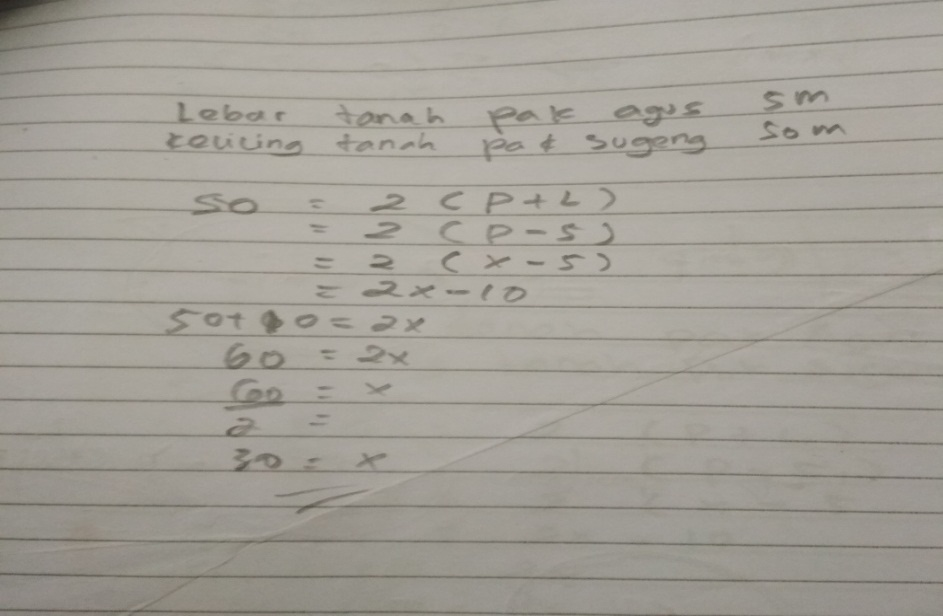 Lebar tanah pak agus 5m
keliling tanah pak sugeng 50m
50 = 2 (P+L)
= 2 (P-5)
= 2 (x-5)
= 2x-10
50+10=2x
60 = 2x
60 = x
2 =
30 = x